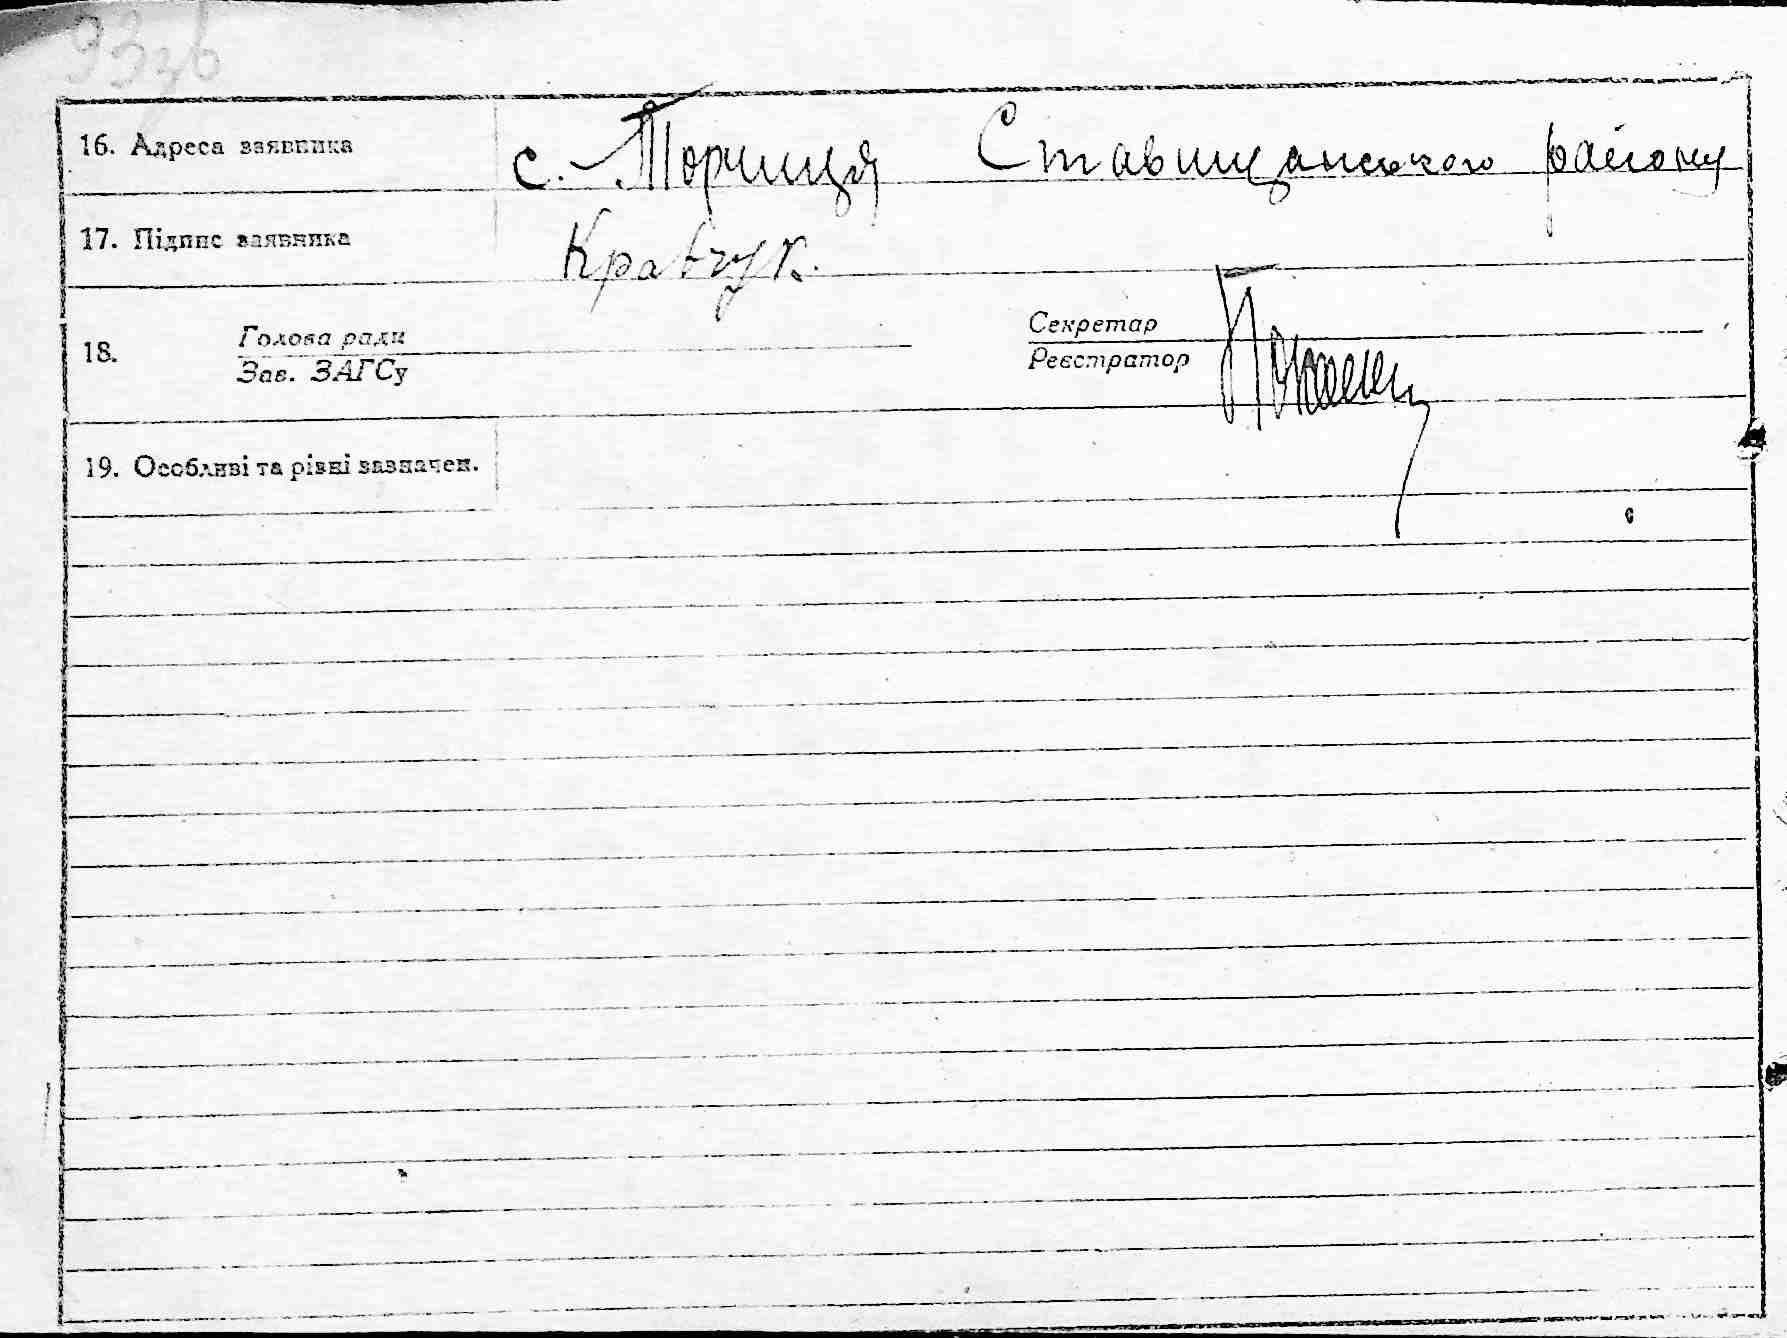 93зв
16. Адреса заявника с. Торчиця Ставищанського району
17. Підпис заявника Кравчук.
Голова ради Секретар
18.
Зав. ЗАГСу Реєстратор
19. Особливі та різні зазначен.